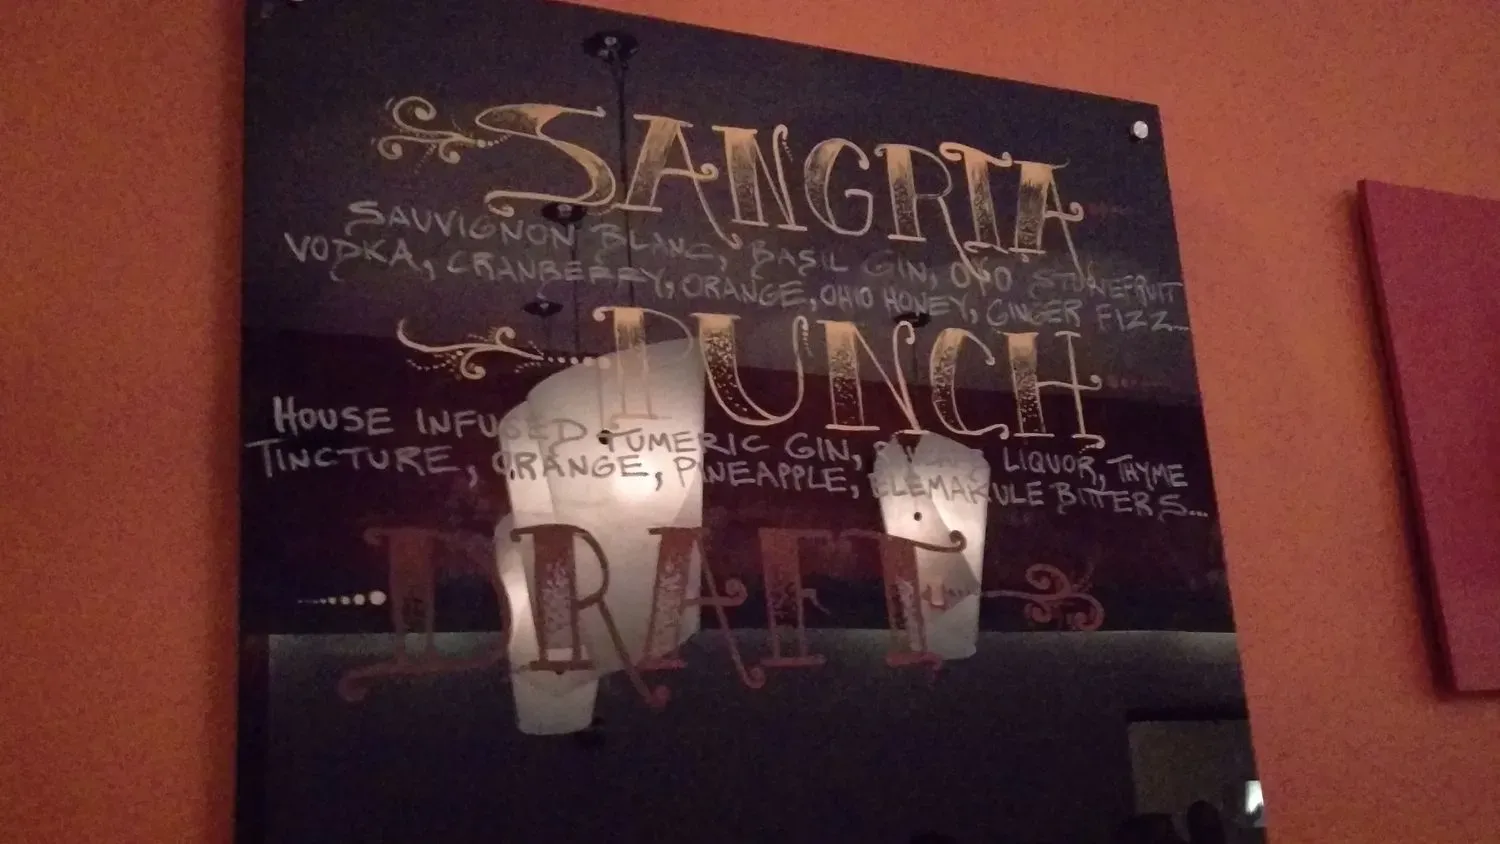 SANGRIA
SAUVIGNON BLANC, BASIL GIN, OYO STONEFRUIT
VODKA, CRANBERRY, ORANGE, OHIO HONEY, GINGER FIZZ...
PUNCH
HOUSE INFUSED TUMERIC GIN, LIQUOR, THYME
TINCTURE, ORANGE, PINEAPPLE, ELEMAKULE BITTERS...
DRAFT